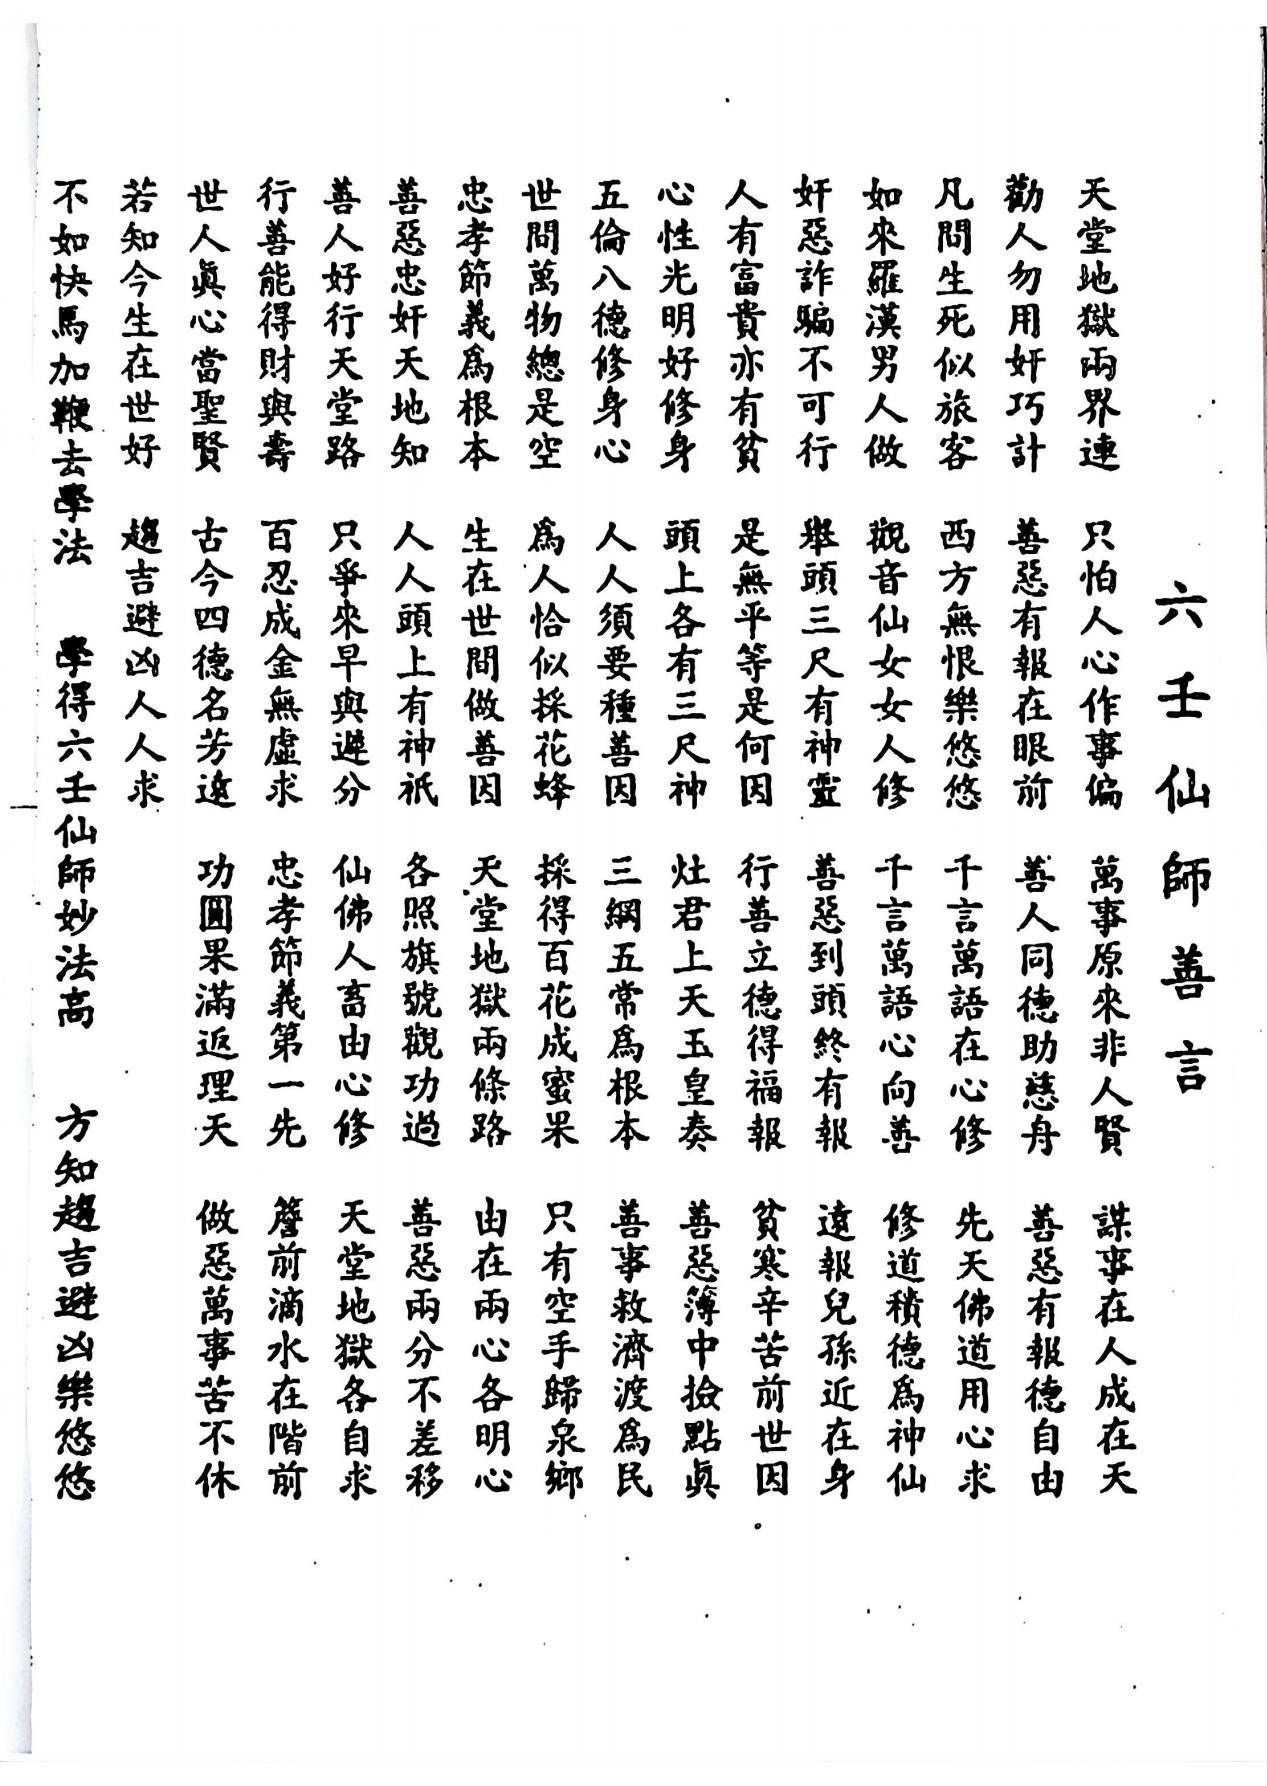 六壬仙師善言
天堂地獄兩界連 只怕人心作事偏 萬事原來非人賢 謀事在人成在天
勸人勿用奸巧計 善惡有報在眼前 善人同德助慈舟 善惡有報德自由
凡問生死似旅客 西方無恨樂悠悠 千言萬語在心修 先天佛道用心求
如來羅漢男人做 觀音仙女女人修 千言萬語心向善 修道積德爲神仙
奸惡詐騙不可行 舉頭三尺有神靈 善惡到頭終有報 遠報兒孫近在身
人有富貴亦有貧 是無平等是何因 行善立德得福報 貧寒辛苦前世因
心性光明好修身 頭上各有三尺神 灶君上天玉皇奏 善惡簿中撿點眞
五倫八德修身心 人人須要種善因 三綱五常爲根本 善事救濟渡爲民
世間萬物總是空 爲人恰似採花蜂 採得百花成蜜果 只有空手歸泉鄉
忠孝節義爲根本 生在世間做善因 天堂地獄兩條路 由在兩心各明心
善惡忠奸天地知 人人頭上有神祇 各照旗號觀功過 善惡兩分不差移
善人好行天堂路 只爭來早與遲分 仙佛人畜由心修 天堂地獄各自求
行善能得財與壽 百忍成金無虛求 忠孝節義第一先 簷前滴水在階前
世人眞心當聖賢 古今四德名芳遠 功圓果滿返理天 做惡萬事苦不休
若知今生在世好 趨吉避凶人人求
不如快馬加鞭去學法 學得六壬仙師妙法高 方知趨吉避凶樂悠悠